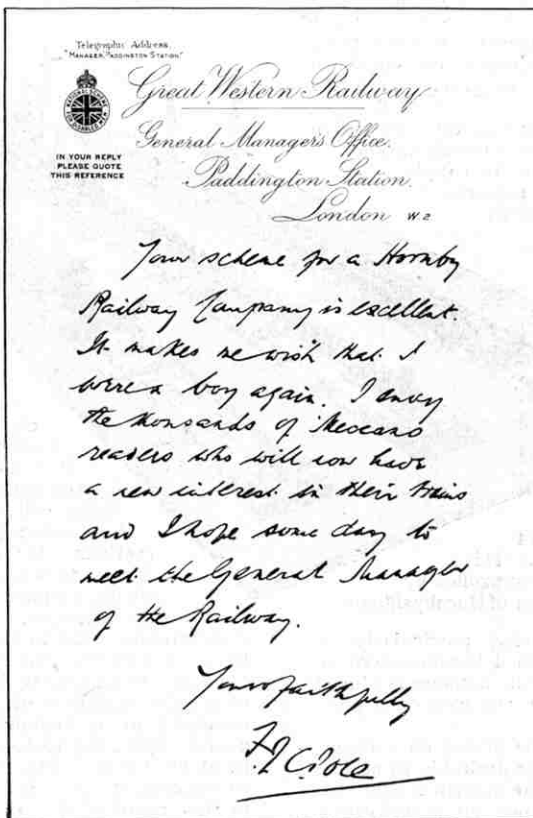 Telegraphic Address,
"MANAGER, PADDINGTON STATION."
Great Western Railway
NATIONAL SCHEME
FOR DISABLED MEN
General Managers Office,
IN YOUR REPLY
PLEASE QUOTE
THIS REFERENCE
Paddington Station,
London W2
Your scheme for a Hornby
Railway Company is excellent.
It makes me wish that I
were a boy again. I envy
the thousands of Meccano
readers who will now have
a new interest in their trains
and I hope some day to
meet the General Manager
of the Railway.
Yours faithfully
F J C Pole